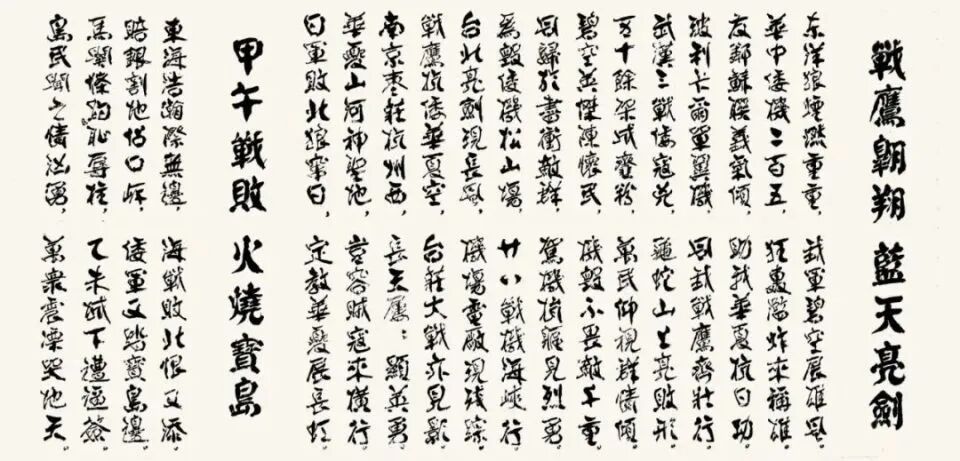 戰鷹翱翔 藍天亮劍
东洋狼煙燃重重，我軍碧空展雄風。
華中倭機二百五，狂轟濫炸來稱雄。
友鄰蘇聯義氣傾，助我華夏抗日功。
波利卡爾軍翼機，同我戰鷹齊壯行。
武漢三戰倭寇光，龜蛇山上亮敗形。
五十餘架成齏粉，萬民仰視群情傾。
碧空英傑陳懷民，機毀不畏敵千重。
歸於盡衝敵群，駕機撞 見烈勇。
為毀倭機松山場，廿八戰機海峽行。
台北亮劍現長風，機場電廠現殘蹤。
戰鷹抗倭華夏空，台莊大戰亦見影。
南京枣莊杭州西，長天鷹：顯英勇。
華夏山河神聖地，豈容賊寇來橫行。
日軍敗北狼 日，定教華夏展長虹。
甲午戰敗 火燒寶島
東海浩瀚際無邊，海戰敗北恨又添。
賠銀割地 口岸，倭軍又踏寶島邊。
馬關條約恥辱柱，乙未城下遭逼簽。
島民聞之情洶湧，萬衆震慄哭地天。